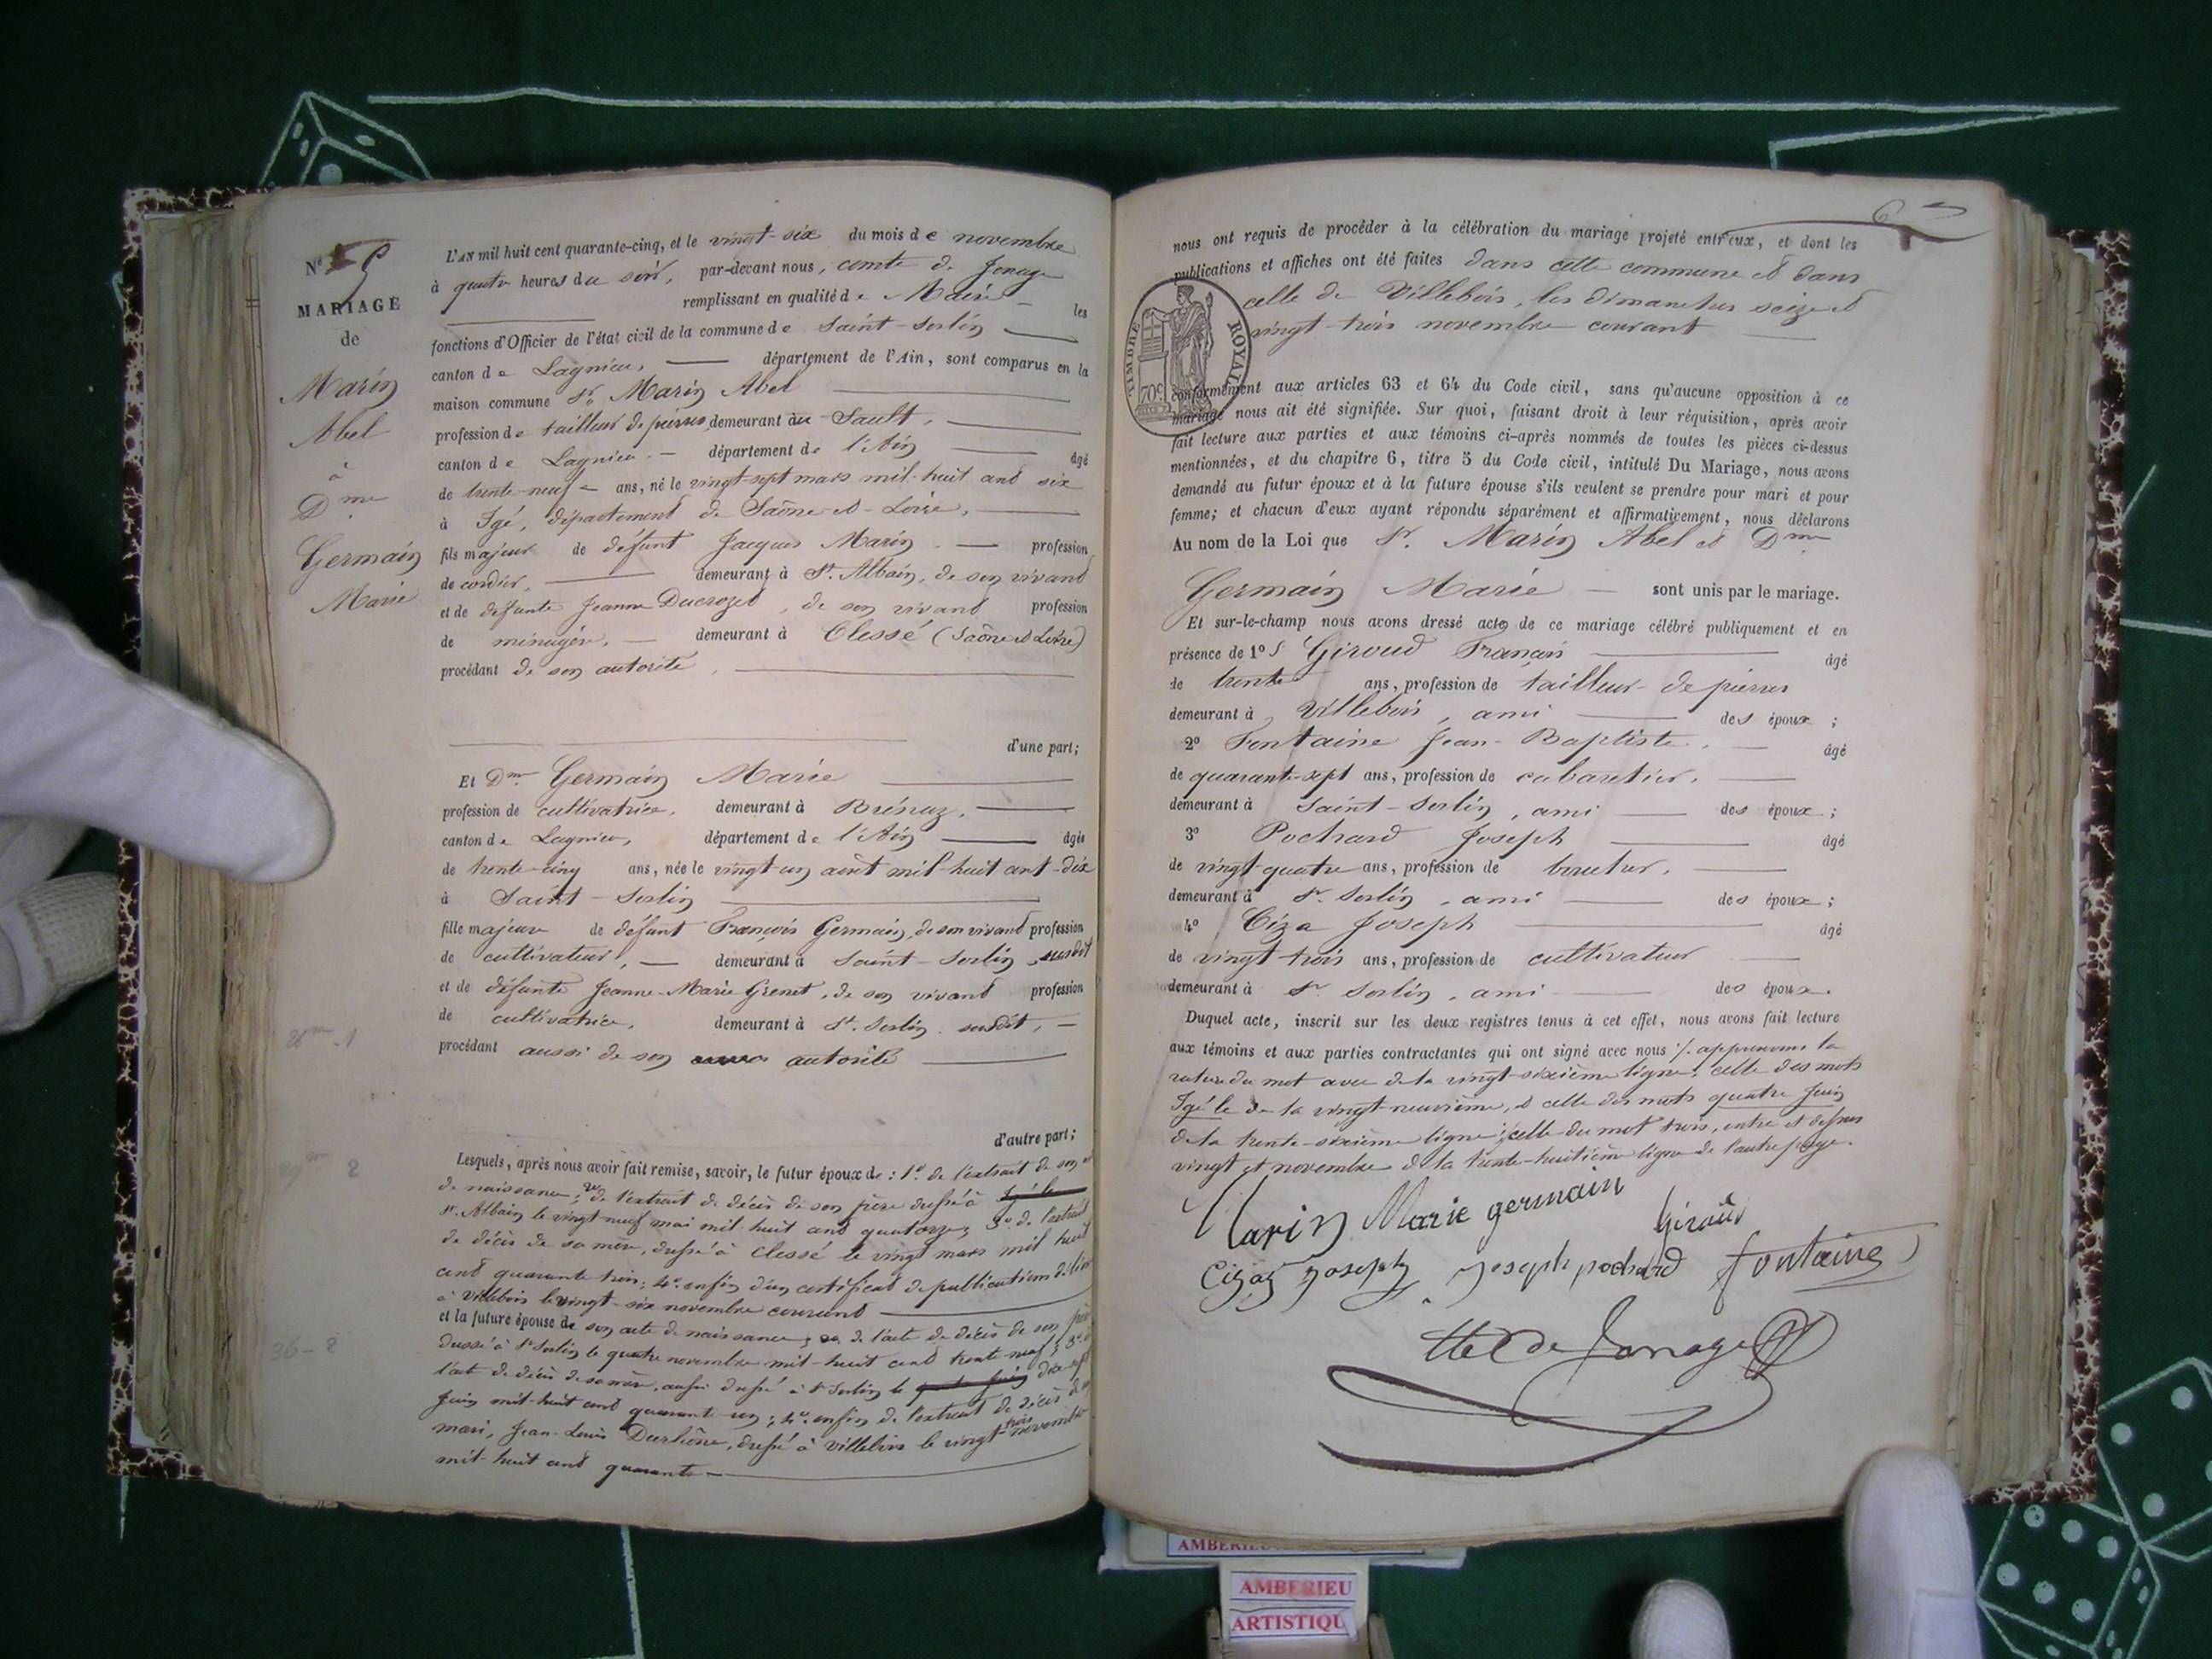 N° 9
MARIAGE
de
Marin
Abel
à
Dme
Germain
Marie
L'AN mil huit cent quarante-cinq, et le vingt-six du mois de novembre
à quatre heures du soir, par-devant nous, comte de Jonage
remplissant en qualité de Maire les
fonctions d'Officier de l'état civil de la commune de Saint-Sorlin
canton de Lagnieu, département de l'Ain, sont comparus en la
maison commune Sr. Marin Abel
profession de tailleur de pierres, demeurant au Sault,
canton de Lagnieu. département de l'Ain âgé
de trente-neuf ans, né le vingt-sept mars mil-huit cent six
à Igé, département de Saône et-Loire,
fils majeur de défunt Jacques Marin profession
de cordier, demeurant à St. Albain, de son vivant
et de défunte Jeanne Ducrozet, de son vivant profession
de ménagère, demeurant à Clessé (Saône et Loire)
procédant de son autorité.
d'une part;
Et Dme Germain Marie
profession de cultivatrice, demeurant à Brénaz,
canton de Lagnieu, département de l'Ain âgée
de trente-cinq ans, née le vingt-un août mil-huit cent-dix
à Saint-Sorlin
fille majeure de défunt François Germain, de son vivant profession
de cultivateur, demeurant à Saint-Sorlin susdit
et de défunte Jeanne-Marie Grenet, de son vivant profession
de cultivatrice, demeurant à St. Sorlin susdit,
procédant aussi de son avec autorité
d'autre part;
Lesquels, après nous avoir fait remise, savoir, le futur époux de : 1°. de l'extrait de son
de naissance; 2° de l'extrait de décès de son père dressé à Igé le
St. Albain le vingt-neuf mai mil huit cent quatorze; 3°. de l'extrait
de décès de sa mère, dressé à Clessé le vingt mars mil huit
cent quarante trois; 4°. enfin d'un certificat de publications délivré
à Villebois le vingt-six novembre courant
et la future épouse de son acte de naissance; 2° de l'acte de décès de son père
dressé à St Sorlin le quatre novembre mil-huit cent trente-neuf; 3°. de
l'acte de décès de sa mère, aussi dressé à St Sorlin le quatre Juin dix-sept
Juin mil-huit cent quarante-un; 4°. enfin de l'extrait de décès de son
mari, Jean-Louis Durhône, dressé à Villebois le vingt-trois novembre
mil-huit cent quarante
26me - 1
29me 2
36 - 2
6
nous ont requis de procéder à la célébration du mariage projeté entr'eux, et dont les
publications et affiches ont été faites dans cette commune et dans
celle de Villebois, les dimanches seize et
vingt-trois novembre courant
TIMBRE ROYAL
70c
conformément aux articles 63 et 64 du Code civil, sans qu'aucune opposition à ce
mariage nous ait été signifiée. Sur quoi, faisant droit à leur réquisition, après avoir
fait lecture aux parties et aux témoins ci-après nommés de toutes les pièces ci-dessus
mentionnées, et du chapitre 6, titre 5 du Code civil, intitulé Du Mariage, nous avons
demandé au futur époux et à la future épouse s'ils veulent se prendre pour mari et pour
femme; et chacun d'eux ayant répondu séparément et affirmativement, nous déclarons
Au nom de la Loi que Sr. Marin Abel et Dme
Germain Marie sont unis par le mariage.
Et sur-le-champ nous avons dressé acte de ce mariage célébré publiquement et en
présence de 1° S Giroud Français âgé
de trente ans, profession de tailleur-de pierres
demeurant à Villebois, ami des époux ;
2° Fontaine Jean-Baptiste. âgé
de quarante-sept ans, profession de cabaretier,
demeurant à Saint-Sorlin, ami des époux ;
3° Pochard Joseph âgé
de vingt-quatre ans, profession de
demeurant à St. Sorlin, ami des époux ;
4° Ciza Joseph âgé
de vingt trois ans, profession de cultivateur
demeurant à St. Sorlin, ami des époux.
Duquel acte, inscrit sur les deux registres tenus à cet effet, nous avons fait lecture
aux témoins et aux parties contractantes qui ont signé avec nous ./. approuvons la
rature du mot avec de la vingt-sixième ligne; celle des mots
Igé le de la vingt-neuvième, et celle des mots quatre Juin
de la trente-sixième ligne; celle du mot trois, entre et dessus
vingt et novembre de la trente-huitième ligne de l'autre page.
Marin Marie germain Giroud
Cizaz Joseph Joseph pochard fontaine
Cte de Jonage
AMBERIEU
AMBERIEU
ARTISTIQU